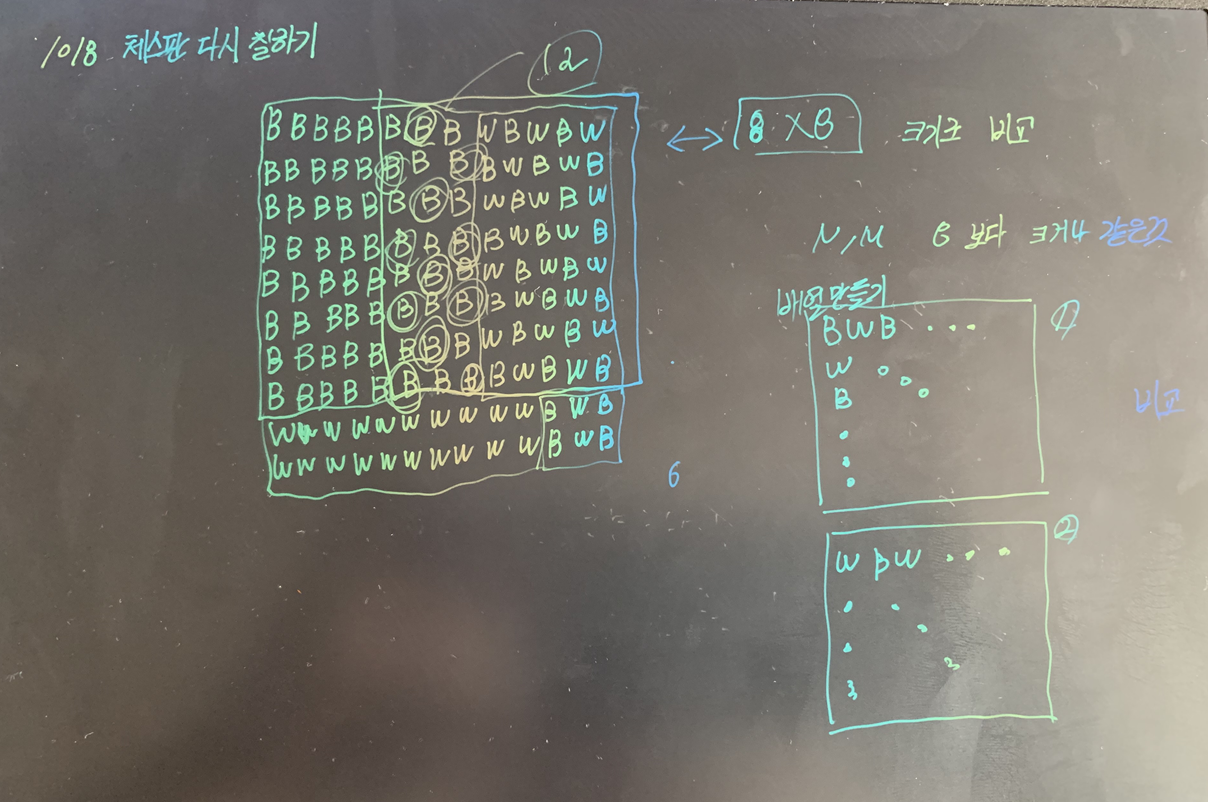 1018 체스판 다시 칠하기
12
B B B B B B B B W B W B W
B B B B B B B B B W B W B
B B B B B B B B W B W B W
B B B B B B B B B W B W B
B B B B B B B B W B W B W
B B B B B B B B B W B W B
B B B B B B B B W B W B W
B B B B B B B B B W B W B
W W W W W W W W W W B W B
W W W W W W W W W W B W B
8 X 8 크기로 비교
N, M 8 보다 크거나 같은것
배열만들기
B W B ...
W
B
①
비교
6
W B W ...
②